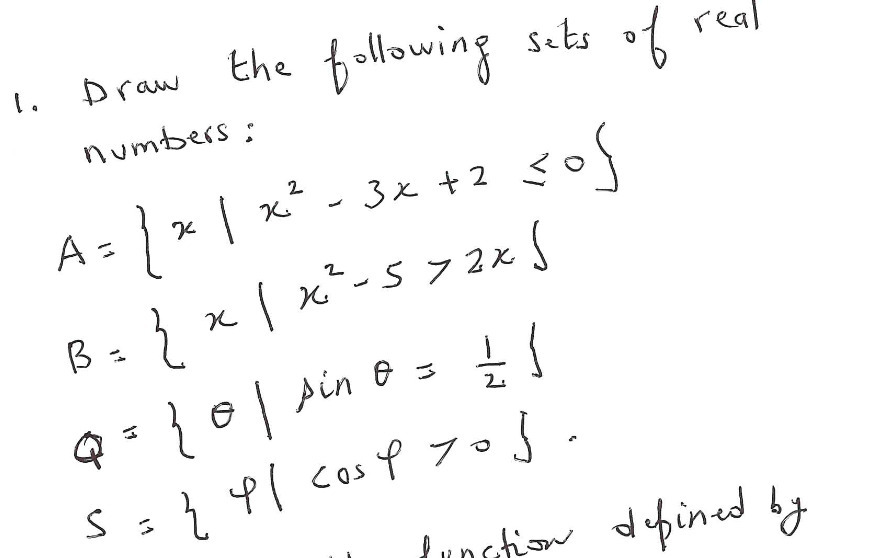 1. Draw the following sets of real
numbers:
A = { x | x² - 3x + 2 ≤ 0 }
B = { x | x² - 5 > 2x }
Q = { θ | sin θ = 1/2 }
S = { φ | cos φ > 0 }.
function defined by